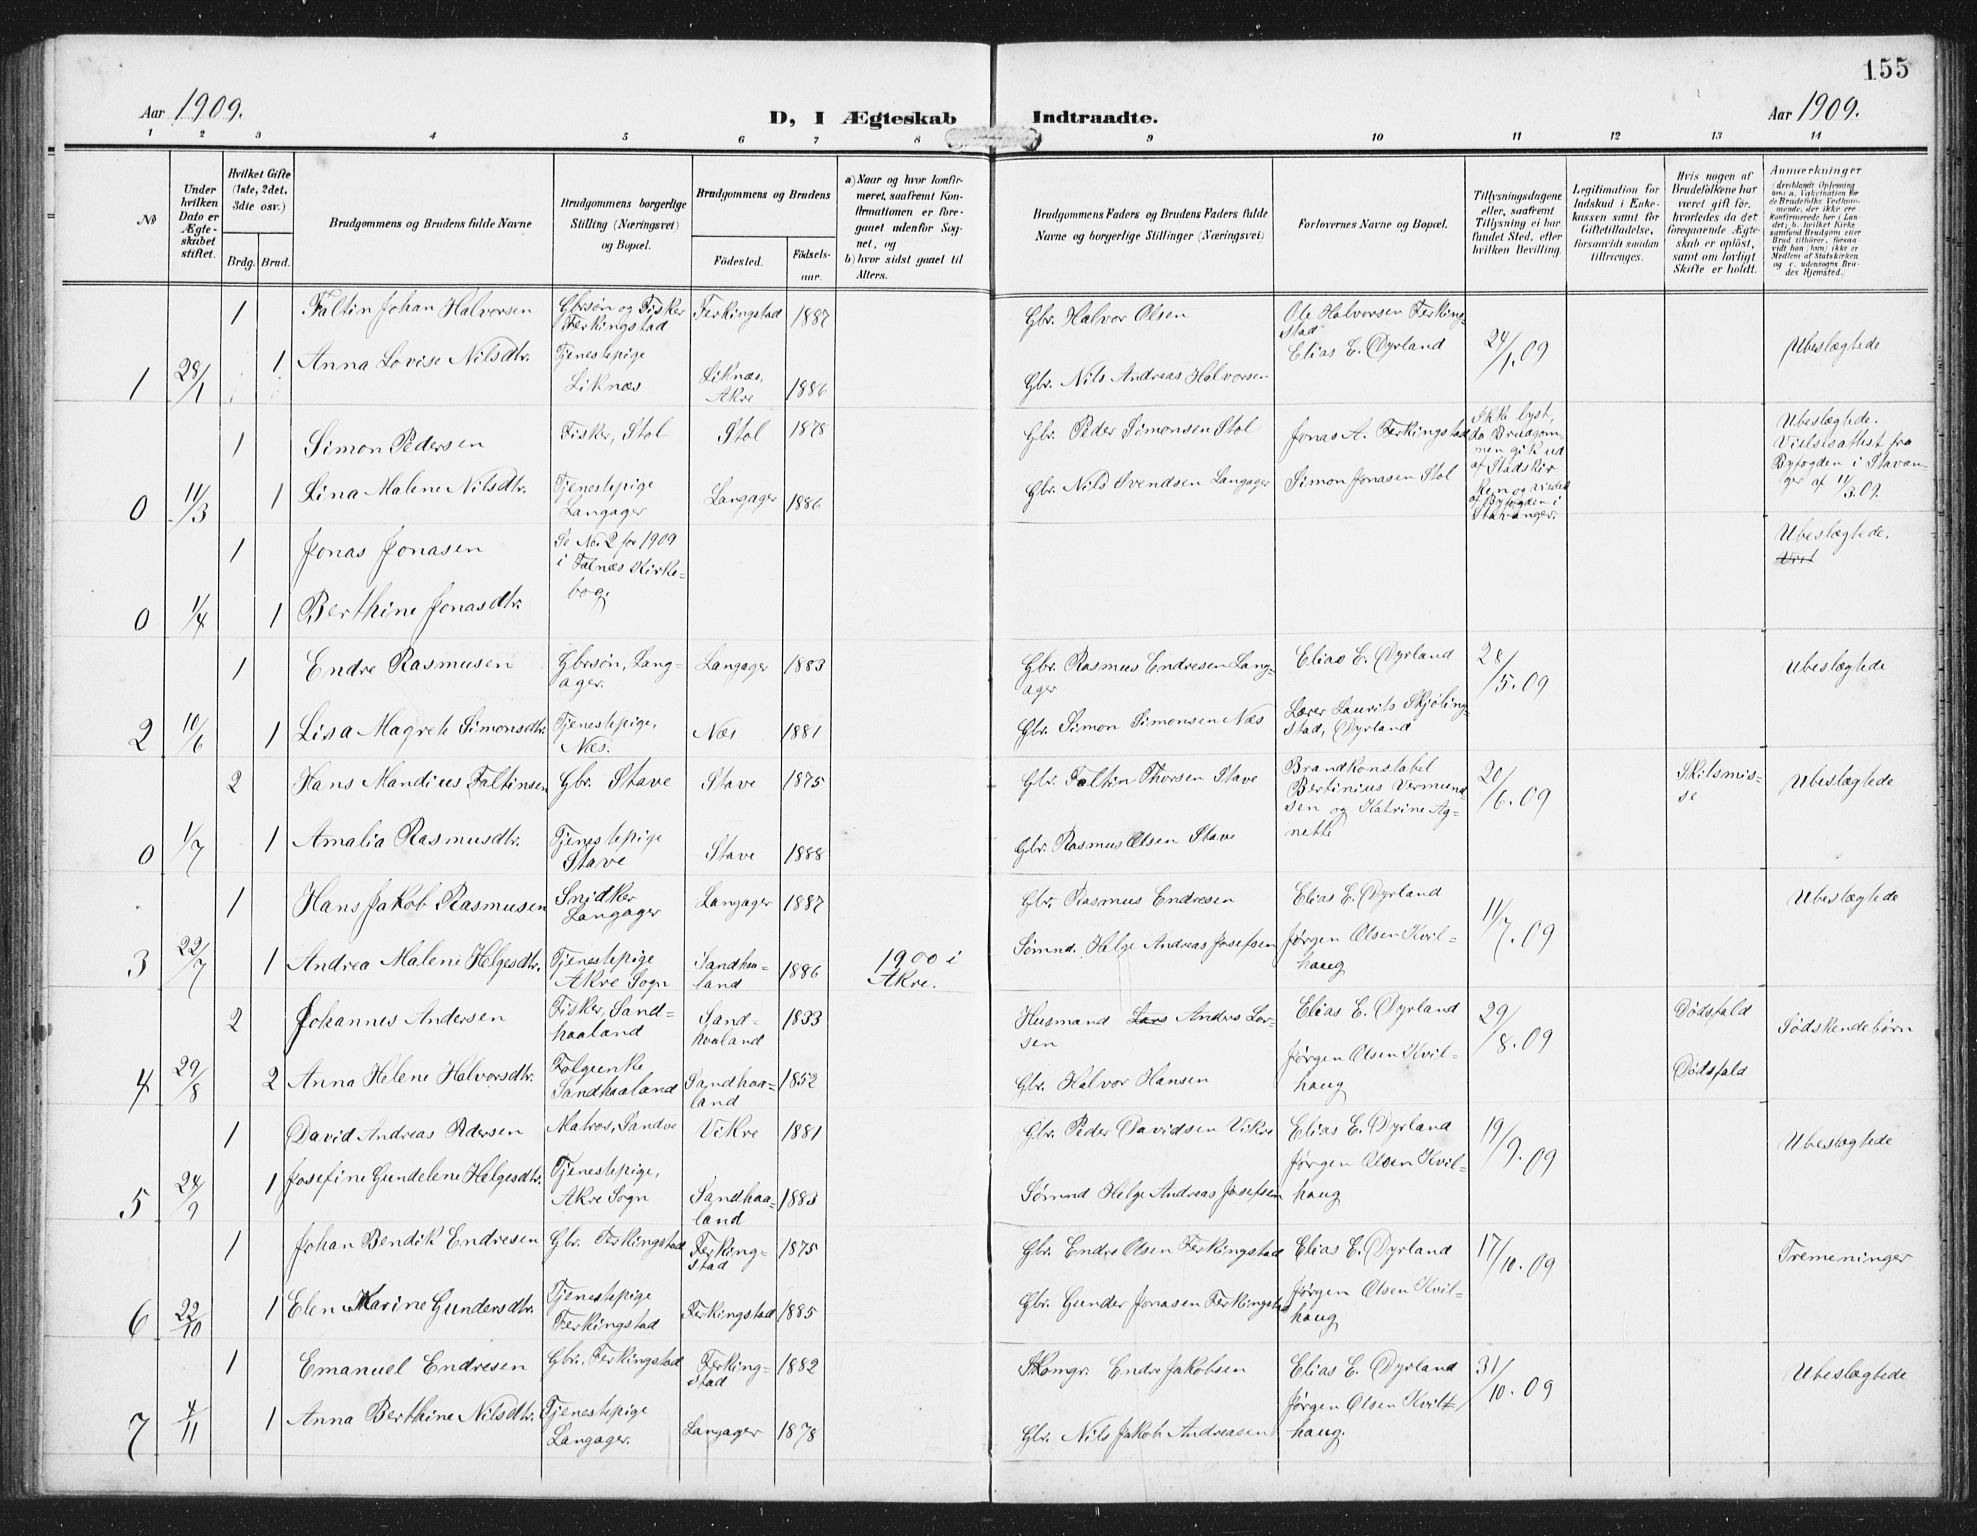 155
Aar 1909.
D, I Ægteskab Indtraadte.
Aar 1909.
1 2 3 4 5 6 7 8 9 10 11 12 13 14
No
Under hvilken Dato er Ægteskabet stiftet.
Hvilket Gifte (1ste, 2det, 3die osv.)
Brdg. Brud.
Brudgommens og Brudens fulde Navne
Brudgommens borgerlige Stilling (Næringsvei) og Bopæl.
Brudgommens og Brudens
Fødested.
Fødselsaar.
a) Naar og hvor konfirmeret, saafremt Konfirmationen er foregaaet udenfor Sognet, og
b) hvor sidst gaaet til Alters.
Brudgommens Faders og Brudens Faders fulde Navne og borgerlige Stillinger (Næringsvei)
Forlovernes Navne og Bopæl.
Tillysningsdagene eller, saafremt Tillysning ei har fundet Sted, efter hvilken Bevilling.
Legitimation for Indskud i Enkekassen samt for Giftetilladelse, forsaavidt saadan tiltrænges.
Hvis nogen af Brudefolkene har været gift før, hvorledes da det foregaaende Ægteskab er opløst, samt om lovligt Skifte er holdt.
Anmærkninger
1 28/1
1 Faltin Johan Halvorsen Gbrsøn og Fisker Ferkingstad Ferkingstad 1887 Gbr. Halvor Olsen Ole Halvorsen Ferkingstad 24/1.09 Ubeslægtede
1 Anna Lovise Nilsdtr. Tjenestepige Liknæs Liknæs, Akre 1886 Gbr. Nils Andreas Halvorsen Elias E. Dyrland
0 11/3
1 Simon Pedersen Fisker, Stol Stol 1878 Gbr. Peder Simonsen Stol Jonas A. Ferkingstad Ikke lyst, da Brudgommen gik ud af Stadskirken og viedes af Byfogden i Stavanger. Ubeslægtede. Vielsesattest fra Byfogden i Stavanger af 11/3.09.
1 Lina Malene Nilsdtr. Tjenestepige Langager Langager 1886 Gbr. Nils Svendsen Langager Simon Jonasen Stol
0 1/4
1 Jonas Jonasen Se No. 2 for 1909 i Falnæs Kirkebog. Ubeslægtede.
1 Berthine Jonasdtr.
2 10/6
1 Endre Rasmusen Gbrsøn, Langager. Langager 1883 Gbr. Rasmus Endresen Langager Elias E. Dyrland 28/5.09 Ubeslægtede
1 Lisa Magrete Simonsdtr. Tjenestepige, Næs. Næs 1881 Gbr. Simon Simonsen Næs Lærer Laurits Skjølingstad, Dyrland
0 1/7
2 Hans Mandius Faltinsen Gbr. Stave Stave 1875 Gbr. Faltin Thorsen Stave Brandkonstabel Bertinius Vermundsen og Katrine Agnette 20/6.09 Skilsmisse Ubeslægtede
1 Amalia Rasmusdtr. Tjenestepige Stave Stave 1888 Gbr. Rasmus Olsen Stave
3 22/7
1 Hans Jakob Rasmusen Snidker Langager Langager 1887 Gbr. Rasmus Endresen Elias E. Dyrland 11/7.09 Ubeslægtede
1 Andrea Malene Helgesdtr. Tjenestepige Akre Sogn Sandhaaland 1886 1900 i Akre. Sømnd. Helge Andreas Josefsen Jørgen Olsen Kvilhaug
4 29/8
2 Johannes Andersen Fisker, Sandhaaland Sandhvaland 1833 Husmand Lars Anders Lorsen Elias E. Dyrland 29/8.09 Dødsfald Sødskendebørn
2 Anna Helene Halvorsdtr. Følgeenke Sandhaaland Sandhaaland 1852 Gbr. Halvor Hansen Jørgen Olsen Kvilhaug Dødsfald
5 24/9
1 David Andreas Pedersen Matros, Sandve Vikre 1881 Gbr. Peder Davidsen Vikre Elias E. Dyrland 19/9.09 Ubeslægtede
1 Josefine Gundelene Helgesdtr. Tjenestepige, Akre Sogn Sandhaaland 1883 Sømnd Helge Andreas Josefsen Jørgen Olsen Kvilhaug
6 22/10
1 Johan Bendik Endresen Gbr. Ferkingstad Ferkingstad 1875 Gbr. Endre Olsen Ferkingstad Elias E. Dyrland 17/10.09 Tremeninger
1 Elen Karine Gundersdtr. Tjenestepige Ferkingstad Ferkingstad 1885 Gbr. Gunder Jonasen Ferkingstad Jørgen Olsen Kvilhaug
7 4/11
1 Emanuel Endresen Gbr. Ferkingstad Ferkingstad 1882 Skomgr. Endre Jakobsen Elias E. Dyrland 31/10.09 Ubeslægtede
1 Anna Berthine Nilsdtr. Tjenestepige Langager. Langager 1878 Gbr. Nils Jakob Andreasen Jørgen Olsen Kvilhaug.